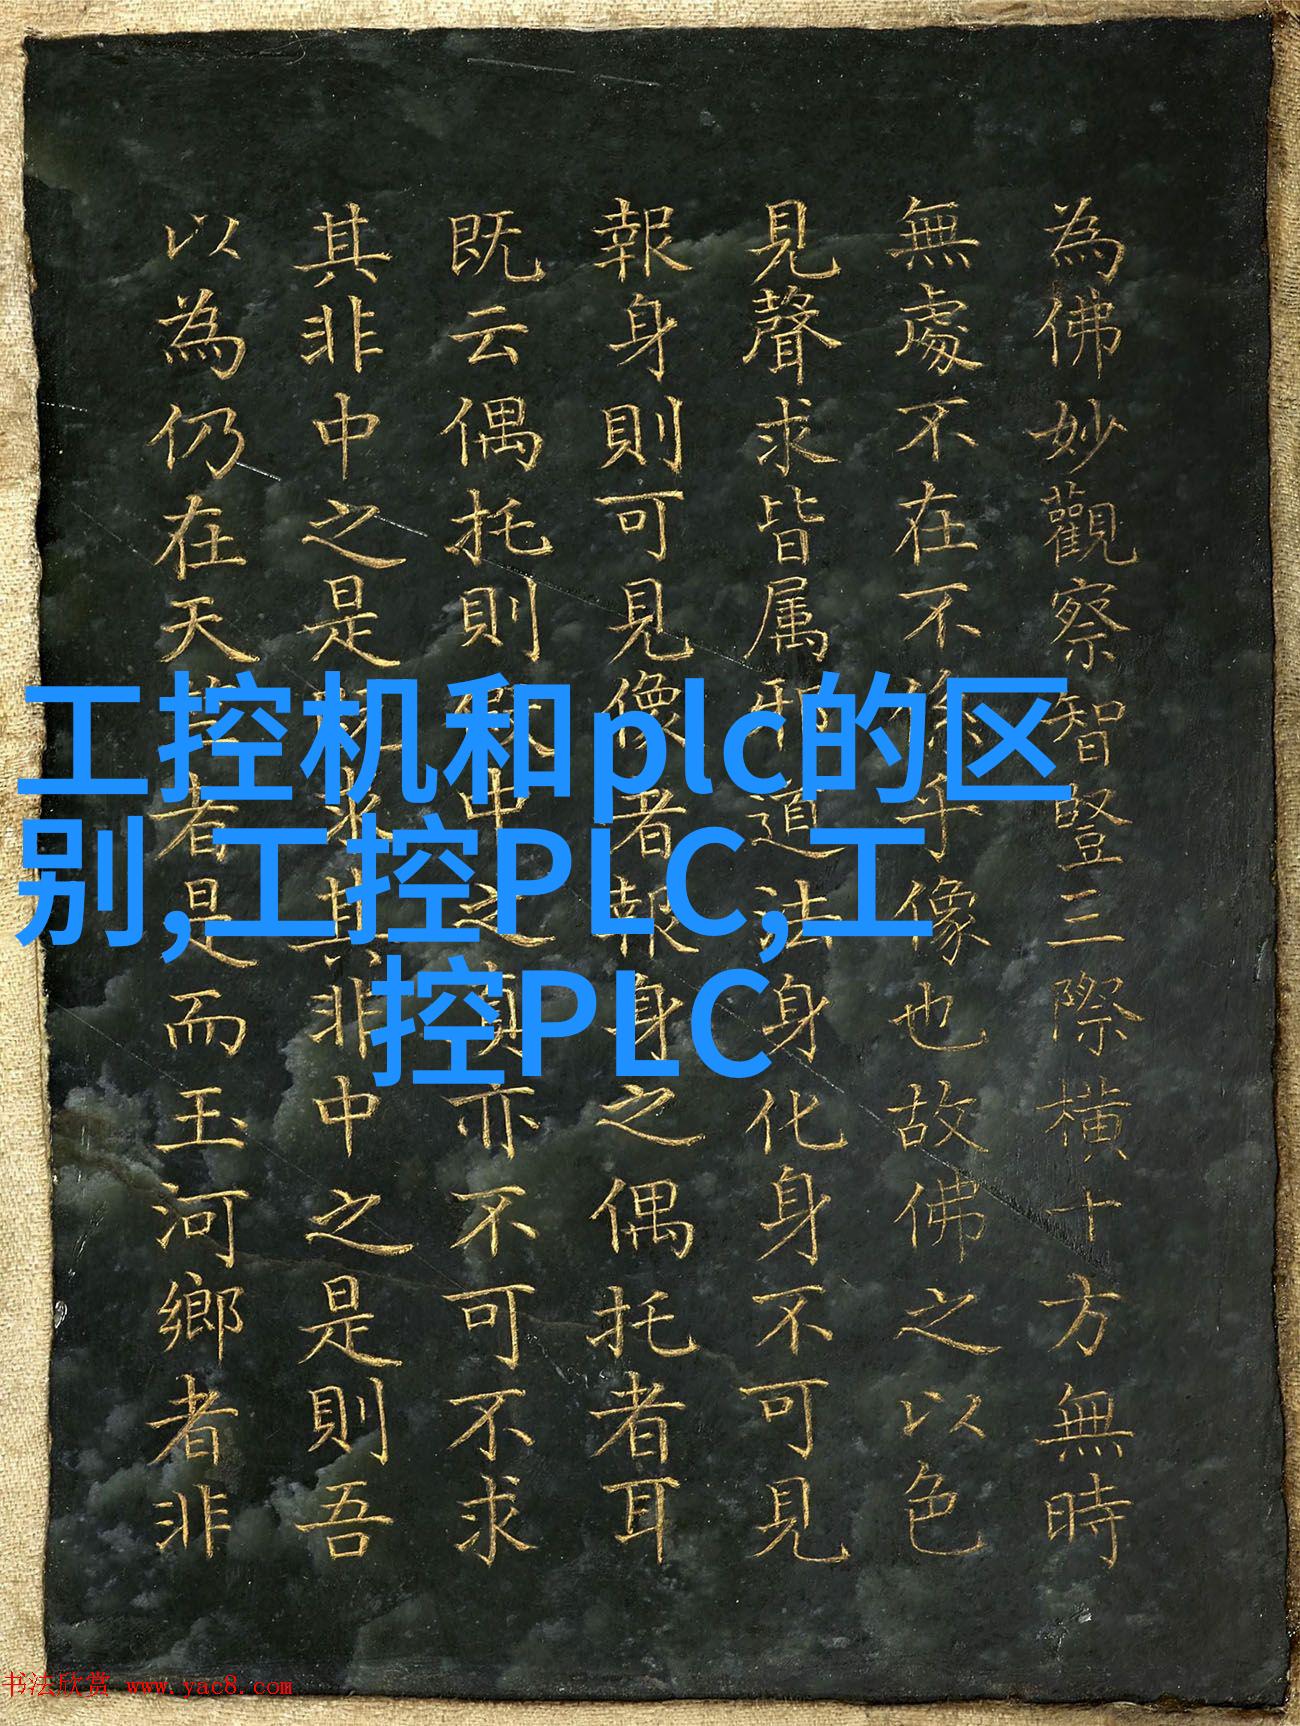 為佛妙觀察智豎三際橫十方無時
無處不在不係乎像也故佛之以色
見聲求皆属邪道法身化身不可見
報身則可見像者報身之偶托者耳
既云偶托則假中之真亦不可不求
其非中之是求其非中之是則吾
以為仍在天竺者是而玉河鄉者非
工控机和plc的区
别,工控PLC,工
控PLC
书法欣赏 www.yac8.com